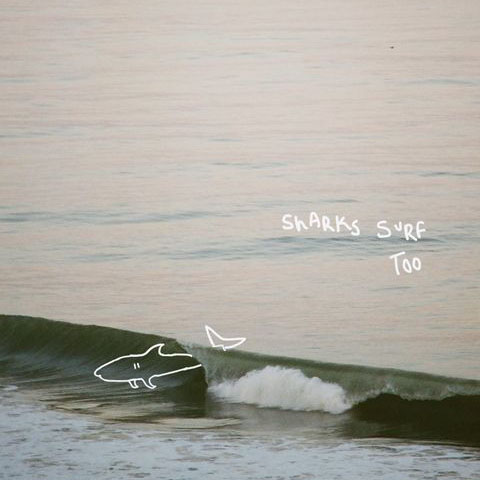 ShARKS SURF
TOO